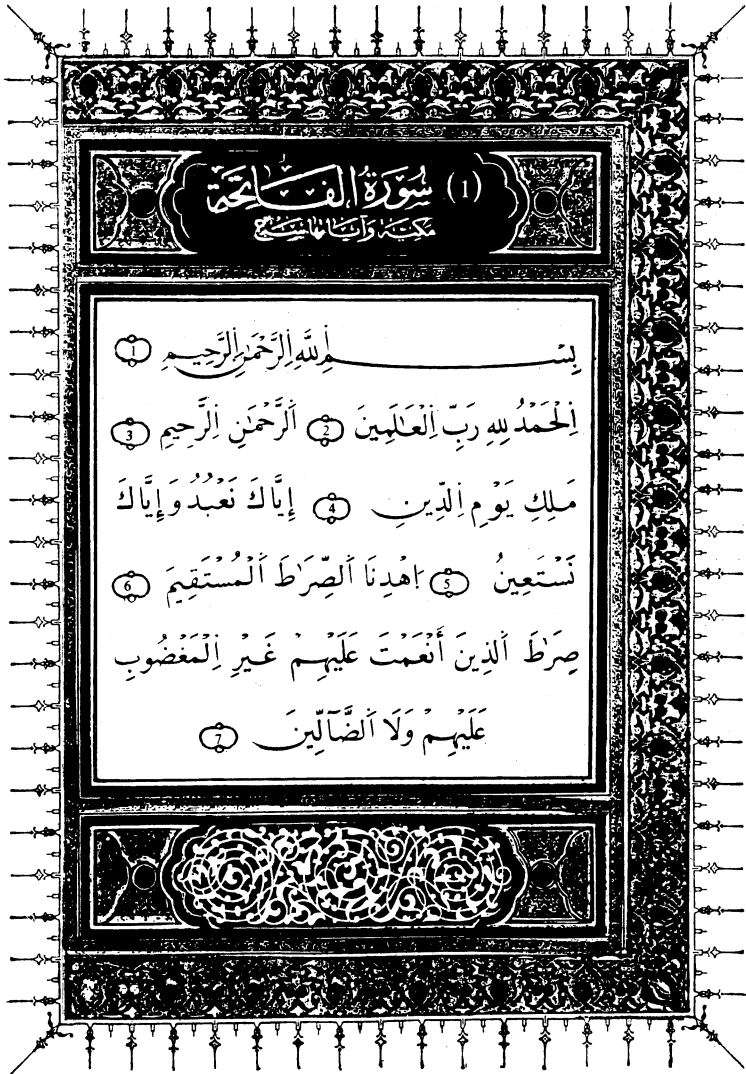 (1) سُورَةُ الفَاتِحَة
مكيّة وآياتها سبع
بِسْمِ اِ۬للَّهِ اِ۬لرَّحْمَٰنِ اِ۬لرَّحِيمِ 1
اِ۬لْحَمْدُ لِلهِ رَبِّ اِ۬لْعَٰلَمِينَ 2 اَ۬لرَّحْمَٰنِ اِ۬لرَّحِيمِ 3
مَلِكِ يَوْمِ اِ۬لدِّينِ 4 إِيَّاكَ نَعْبُدُ وَإِيَّاكَ
نَسْتَعِينُ 5 اَ۪هْدِنَا اَ۬لصِّرَٰطَ اَ۬لْمُسْتَقِيمَ 6
صِرَٰطَ اَ۬لذِينَ أَنْعَمْتَ عَلَيْهِمْ غَيْرِ اِ۬لْمَغْضُوبِ
عَلَيْهِمْ وَلَا اَ۬لضَّآلِّينَ 7